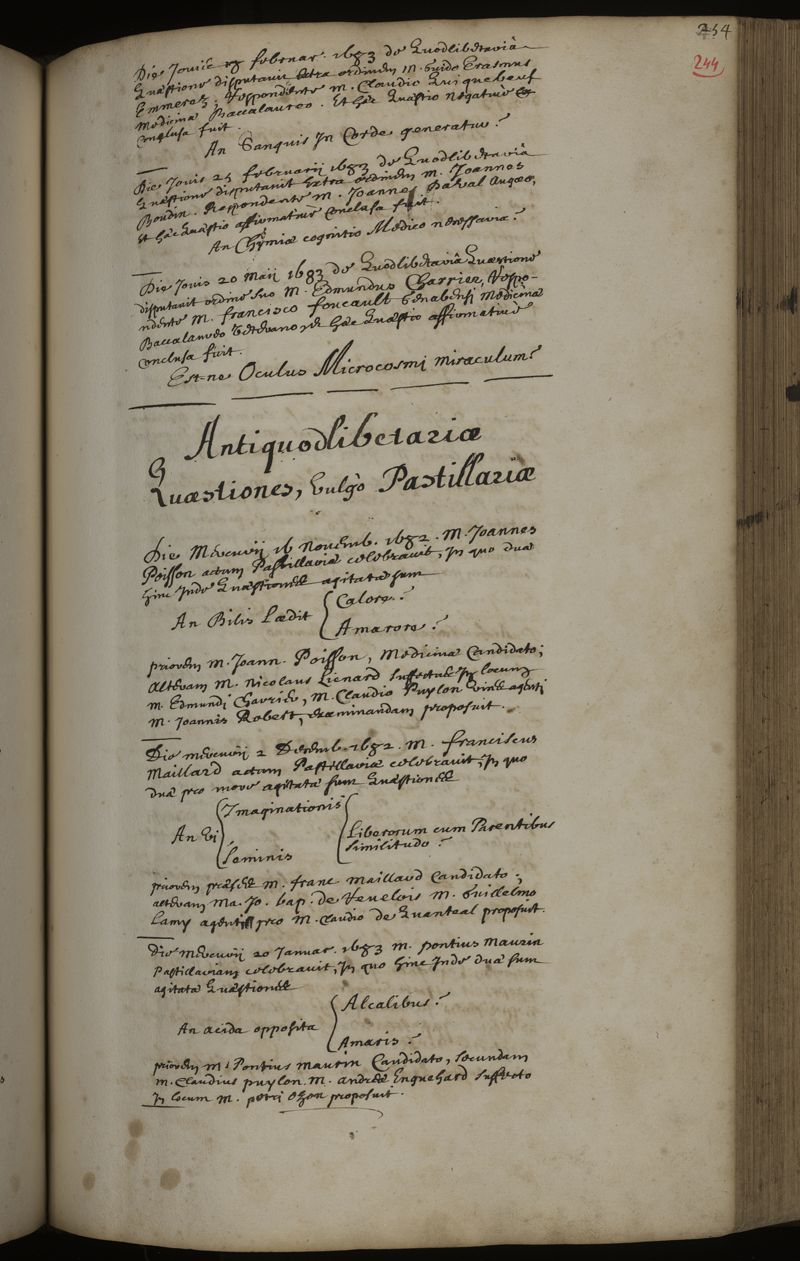 254
244
Die Jovis 18 februar. 1683 de Quodlibetariâ
Quæstione disputavit extra ordinem M. Guido Erasmus
Emmerez, Respondente M. Claudio Quiquebeuf
Medicinæ Baccalaureo. Et hæc Quæstio negativè
conclusa fuit.
An Sanguis In Corde generatur?
Die Jovis 25 februarij 1683 de Quodlibetariâ
Quæstione disputavit Extra ordinem M. Joannes
Boudin. Respondente M. Joanne
Et hæc Quæstio affirmativè conclusa fuit.
An Chymiæ cognitio Medico necessaria?
Die Jovis 20 Maij 1683 de Quodlibetariâ Quæstione
disputavit ordine suo M. Edmundus Charrier, Respo-
ndente M. francisco foucault Genabensi Medicinæ
Baccalaureo Veterano, et hæc Quæstio affirmativè
conclusa fuit.
Est-ne Oculus Microcosmi miraculum?
Antiquodlibetariæ
Quæstiones, Vulgò Pastillariæ
Die Mercurij 16 Novemb. 1682. M. Joannes
Poisson actum Pastillariæ celebravit, In quo duæ
hinc Inde Quæstiones agitatæ sunt
An Bilis Lædit { Calore?
Amarore?
priorem M. Joann. Poisson, Medicinæ Candidato;
Alteram M. Nicolaus Lienard suffectus In locum
M. Edmundi Charrier, M. Claudio Puylon vices agenti
M. Joannis Robert, examinandam proposuit.
Die mercurij 2 Decemb. 1682. M. franciscus
Maillard actum Pastillariæ celebravit, In quo
duæ pro more agitatæ sunt Quæstiones
An Vi { Imaginationis
Seminis } Liberorum cum Parentibus
similitudo?
priorem præses M. franc. Maillard Candidato;
alteram Ma. Jo. bap. de Venelois M. Guidelmo
Lamy agenti pro M. Claudio de Quanteal proposuit.
Die Mercurij 20 Januar. 1683 M. pontius Maurin
Pastillariam celebravit, In quo hinc Inde duæ sunt
agitatæ Quæstiones
An acida opposita { Alcalibus?
Amaris?
priorem M. Pontius maurin Candidato, secundam
M. Claudius puylon. M. andreæ Enguehard suffecto
In locum M. petri Ozon proposuit.